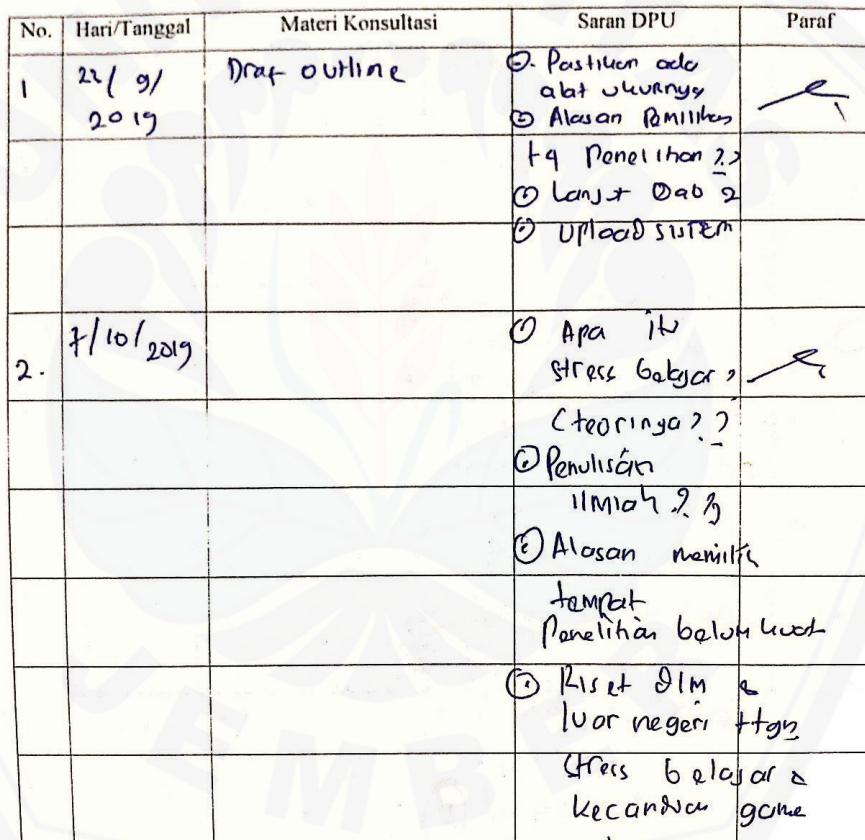 No. Hari/Tanggal Materi Konsultasi Saran DPU Paraf
1 22/9/2019 Draf outline Pastikan ada
alat ukurnya
Alasan Pemilihan
t4 Penelitian ??
Lanjut Bab 2
Upload sistem
2. 7/10/2019 Apa itu
stress belajar?
(teorinya??
Penulisan
ilmiah??
Alasan memilih
tempat
Penelitian belum kuat
Riset dlm &
luar negeri ttgn
stress belajar &
kecanduan game
JEMBER